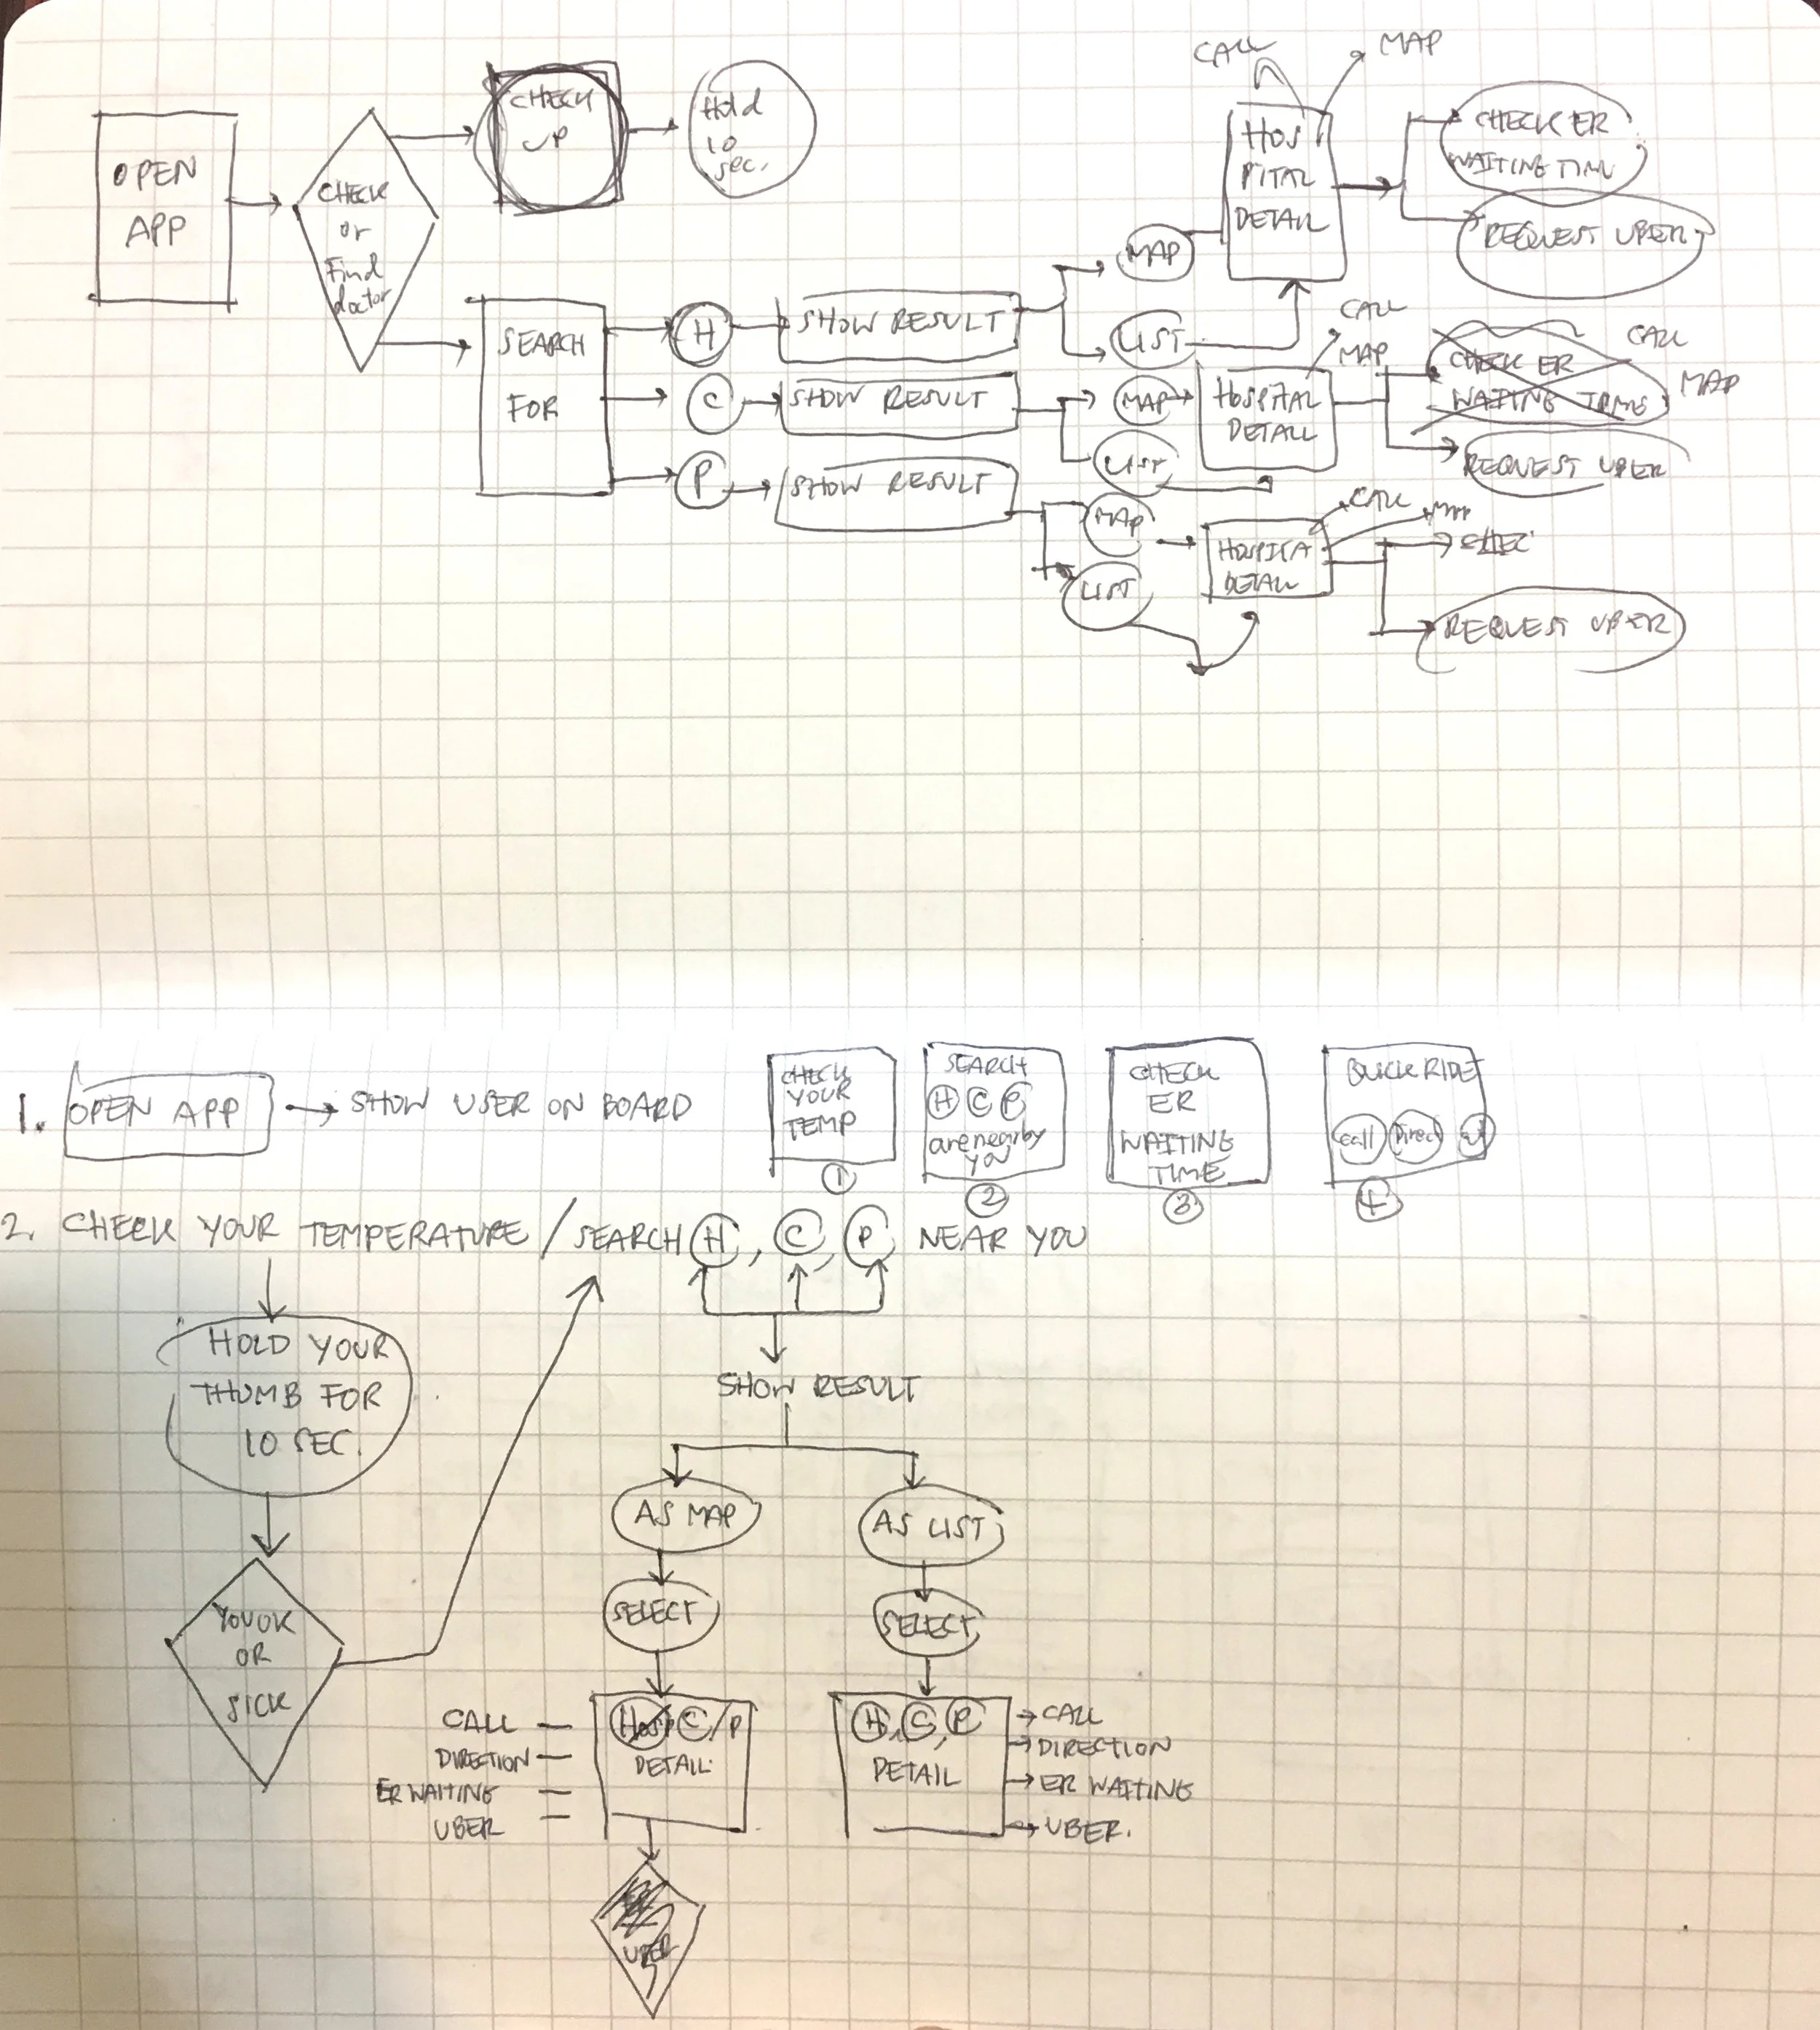 OPEN
APP
CHECK
or
Find
doctor
CHECK
UP
Hold
10
sec.
SEARCH
FOR
H
SHOW RESULT
C
SHOW RESULT
P
SHOW RESULT
MAP
LIST
CALL
MAP
HOS
PITAL
DETAIL
CHECK ER
WAITING TIME
REQUEST UBER
MAP
LIST
HOSPITAL
DETAIL
CALL
MAP
CHECK ER
WAITING TIME
CALL
MAP
REQUEST UBER
MAP
LIST
HOSPITA
DETAIL
CALL
MAP
REQUEST UBER
1. OPEN APP → SHOW USER ON BOARD
CHECK
YOUR
TEMP
1
SEARCH
H C P
are nearby
YOU
2
CHECK
ER
WAITING
TIME
3
QUICK RIDE
Call Direct
4
2. CHECK YOUR TEMPERATURE / SEARCH H, C, P NEAR YOU
HOLD YOUR
THUMB FOR
10 SEC.
YOU OK
OR
SICK
SHOW RESULT
AS MAP
SELECT
Hosp C/P
DETAIL
CALL
DIRECTION
ER WAITING
UBER
UBER
AS LIST
SELECT
H, C, P
DETAIL
CALL
DIRECTION
ER WAITING
UBER.